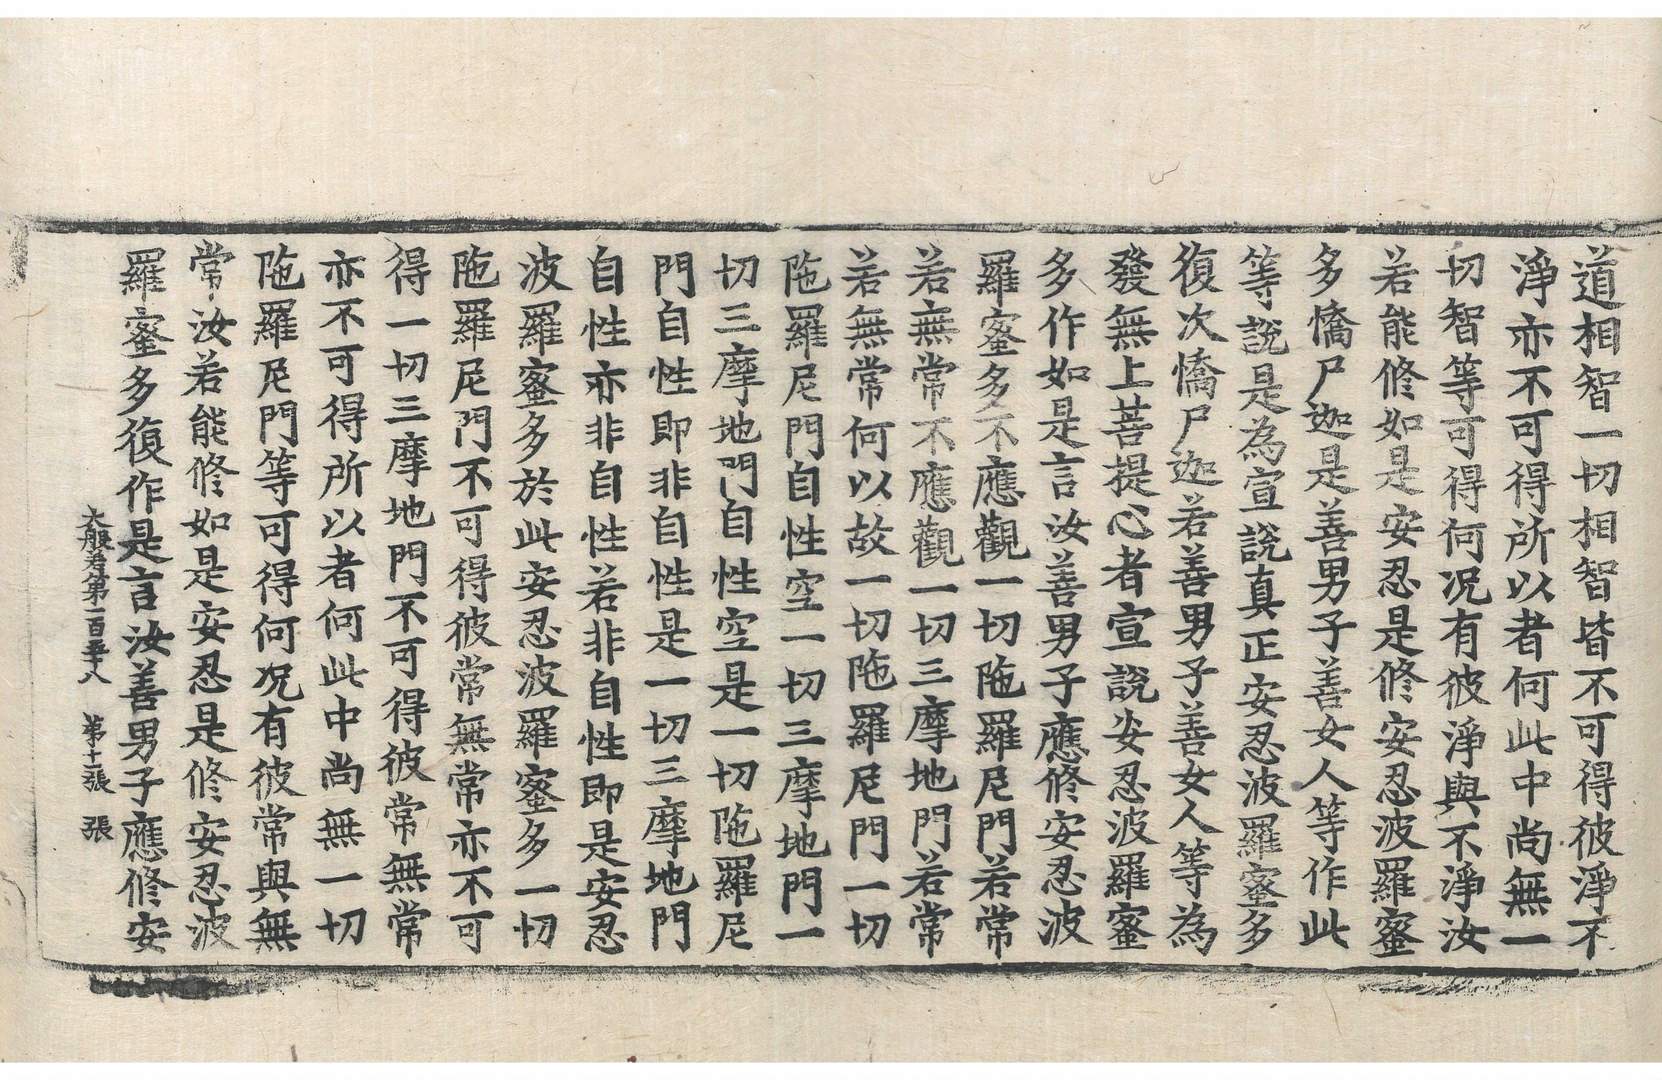 道相智一切相智皆不可得彼淨不
淨亦不可得所以者何此中尚無一
切智等可得何况有彼淨與不淨汝
若能修如是安忍是修安忍波羅蜜
多憍尸迦是善男子善女人等作此
等說是為宣說真正安忍波羅蜜多
復次憍尸迦若善男子善女人等為
發無上菩提心者宣說安忍波羅蜜
多作如是言汝善男子應修安忍波
羅蜜多不應觀一切陁羅尼門若常
若無常不應觀一切三摩地門若常
若無常何以故一切陁羅尼門一切
陁羅尼門自性空一切三摩地門一
切三摩地門自性空是一切陁羅尼
門自性即非自性是一切三摩地門
自性亦非自性若非自性即是安忍
波羅蜜多於此安忍波羅蜜多一切
陁羅尼門不可得彼常無常亦不可
得一切三摩地門不可得彼常無常
亦不可得所以者何此中尚無一切
陁羅尼門等可得何况有彼常與無
常汝若能修如是安忍是修安忍波
羅蜜多復作是言汝善男子應修安
大般若第一百五十八 第十一張 張